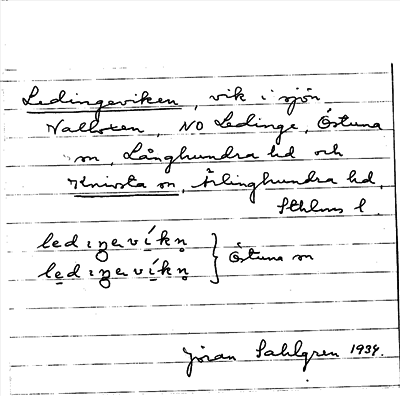 Ledingeviken, vik i sjön
Valloxen, NO Ledinge, Östuna
sn, Långhundra hd och
Knivsta sn, Ärlinghundra hd,
Sthlms l.
ledıŋevíkṇ
lẹdıŋevíkṇ } Östuna sn
Jöran Sahlgren 1934.